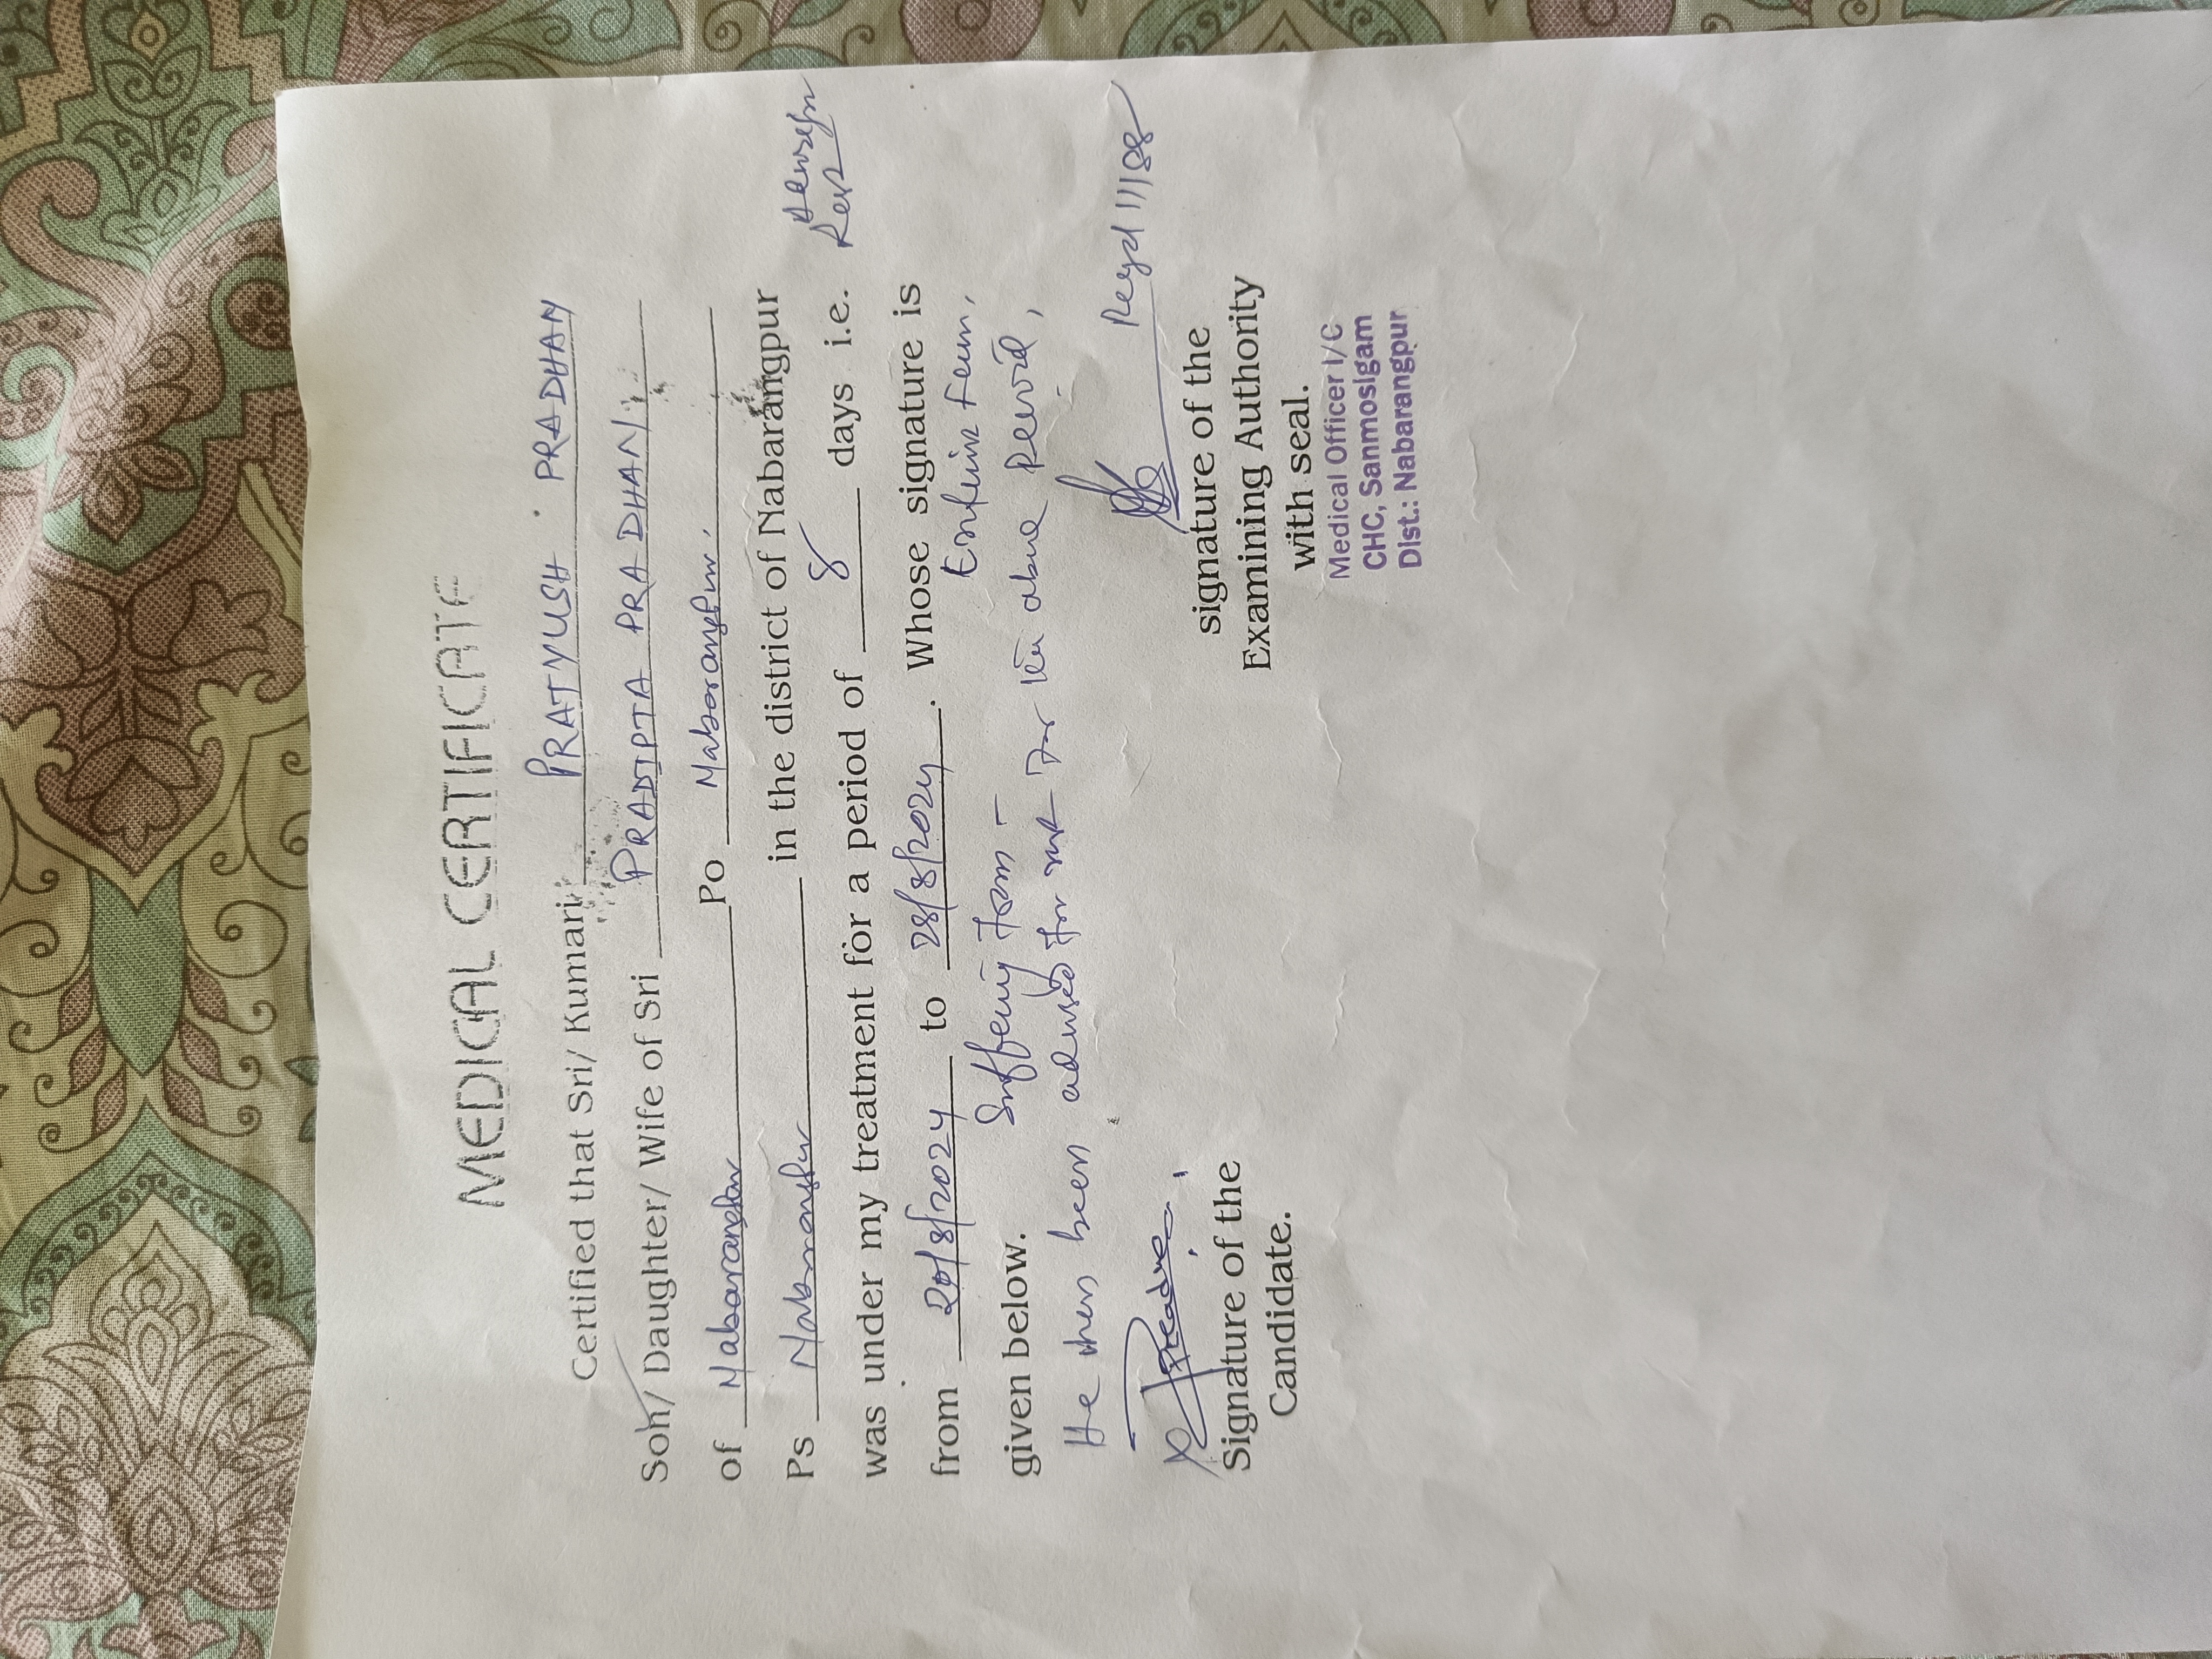 MEDICAL CERTIFICATE
Certified that Sri/ Kumari PRATYUSH PRADHAN
Son/ Daughter/ Wife of Sri PRADIPTA PRADHAN
of Nabarangpur Po Nabarangpur.
Ps Nabarangpur in the district of Nabarangpur
was under my treatment for a period of 8 days i.e.
from 20/8/2024 to 28/8/2024. Whose signature is
given below. Suffering from - Fever,
He been advised for rest for the above period,
Regd 11188
Signature of the
Candidate.
signature of the
Examining Authority
with seal.
Medical Officer I/C
CHC, Sanmosigam
Dist.: Nabarangpur